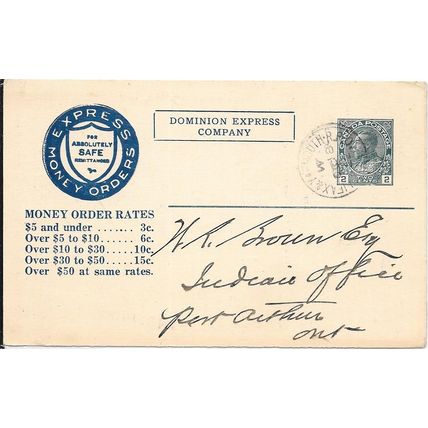 EXPRESS
MONEY ORDERS
FOR
ABSOLUTELY
SAFE
REMITTANCES
DOMINION EXPRESS
COMPANY
CANADA POSTAGE
2 2
MONEY ORDER RATES
$5 and under ....... 3c.
Over $5 to $10 ...... 6c.
Over $10 to $30 .....10c.
Over $30 to $50 .....15c.
Over $50 at same rates.
W R Brown Esq
Indian Office
Port Arthur
Ont